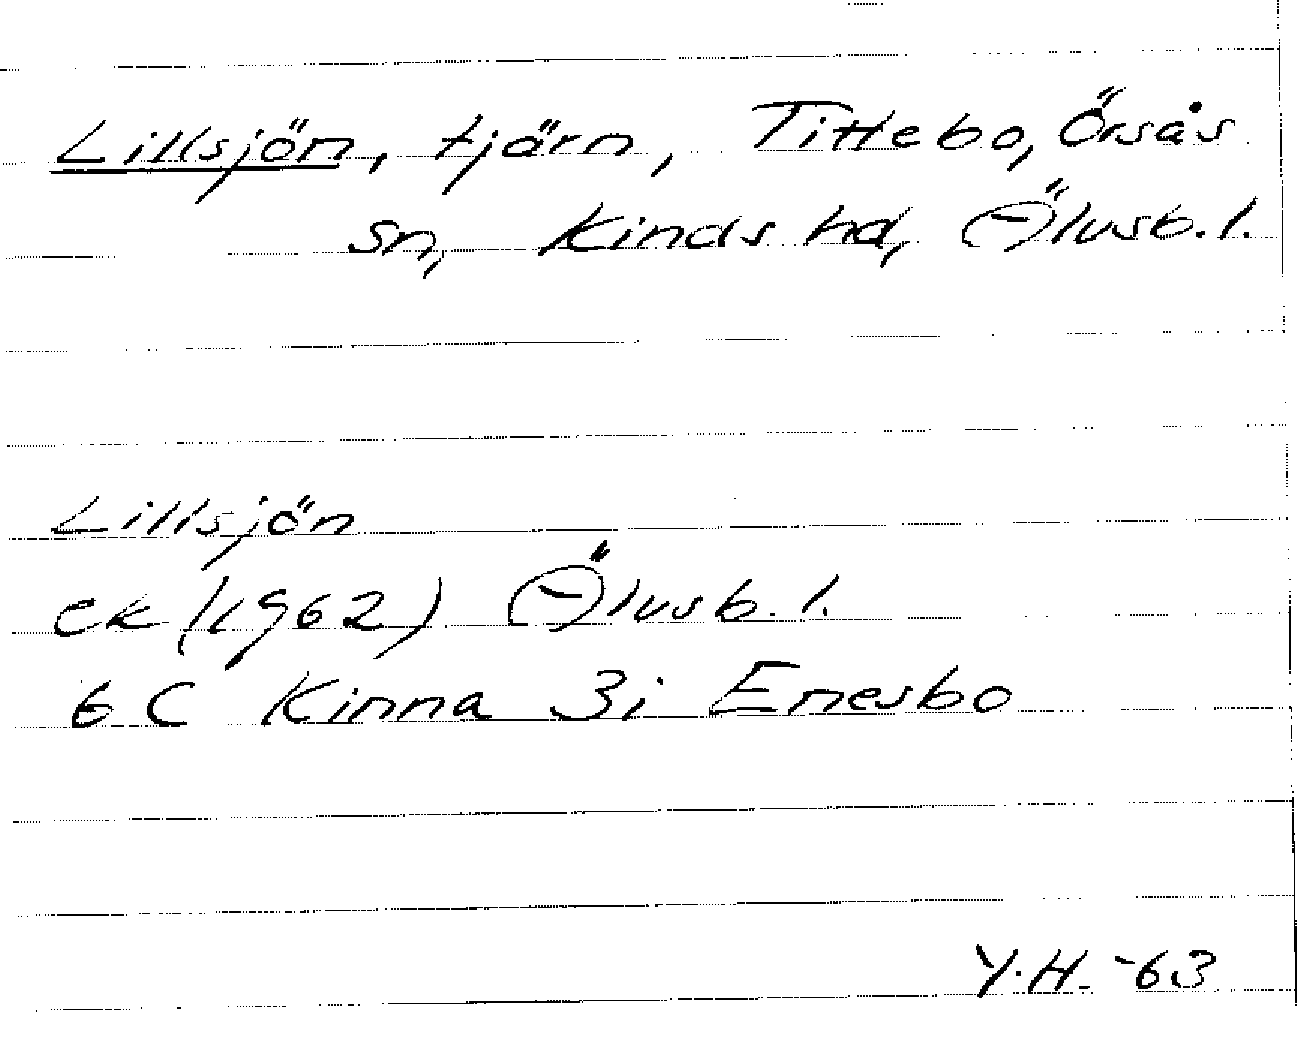 Lillsjön, tjärn, Tittebo, Örsås
sn, Kinds hd, Älvsb. l.
Lillsjön
ek (1962) Älvsb. l.
6 C Kinna 3i Enesbo
Y.H. -63